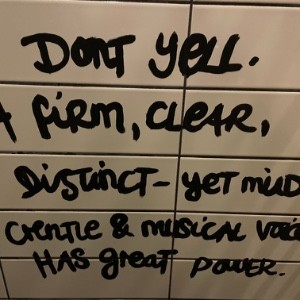 DONT YELL.
A FIRM, CLEAR,
DISTINCT - YET MILD
GENTLE & MUSICAL VOICE
HAS GREAT POWER.